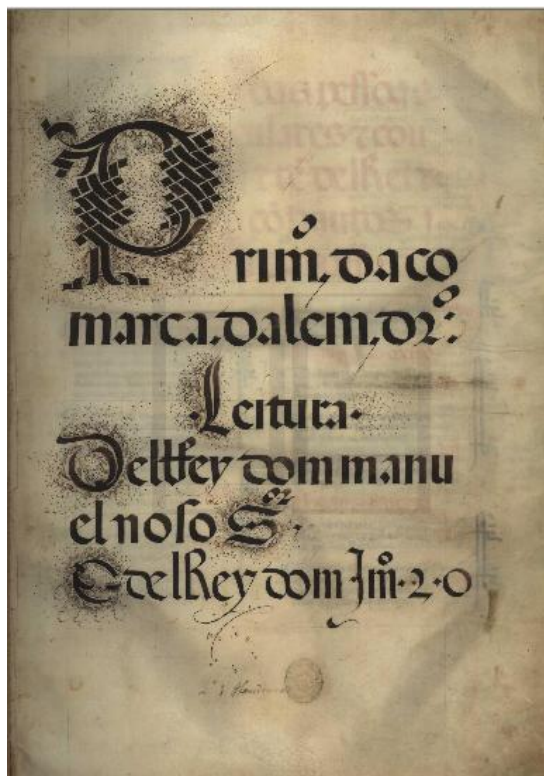 Primº, da co
marca, dalem, drº:
·Leitura·
DelRey dom manu
el noso Sor.
E delRey dom Jmº·2·o